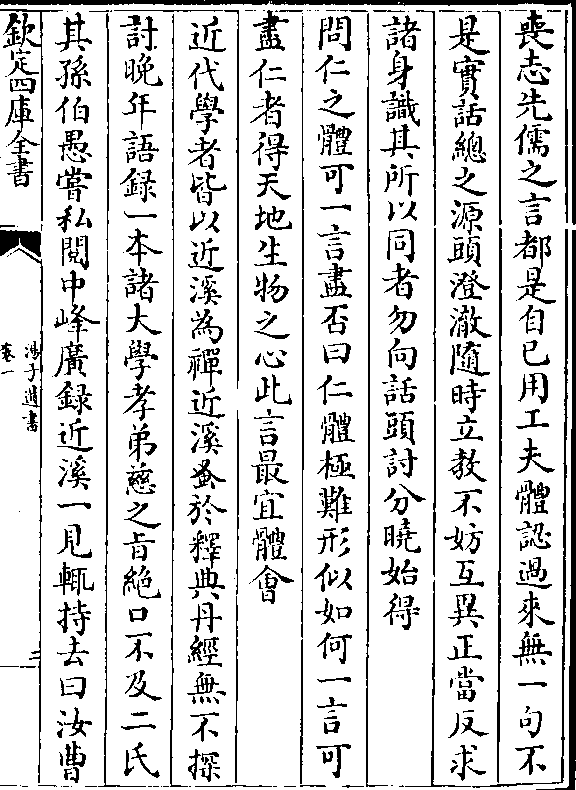 喪志先儒之言都是自己用工夫體認過來無一句不
是實話總之源頭澄澈隨時立教不妨互異正當反求
諸身識其所以同者勿向話頭討分曉始得
問仁之體可一言盡否曰仁體極難形似如何一言可
盡仁者得天地生物之心此言最宜體會
近代學者皆以近溪為禪近溪蚤於釋典丹經無不探
討晚年語録一本諸大學孝弟慈之旨絶口不及二氏
其孫伯愚嘗私閱中峰廣録近溪一見輒持去曰汝曹
欽定四庫全書
馮子遺書
卷一
三